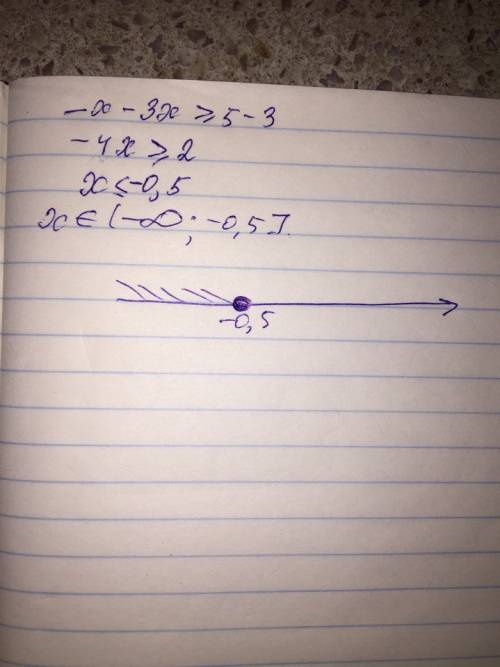 -x - 3x ≥ 5 - 3
-4x ≥ 2
x ≤ -0,5
x ∈ (-∞; -0,5].
-0,5